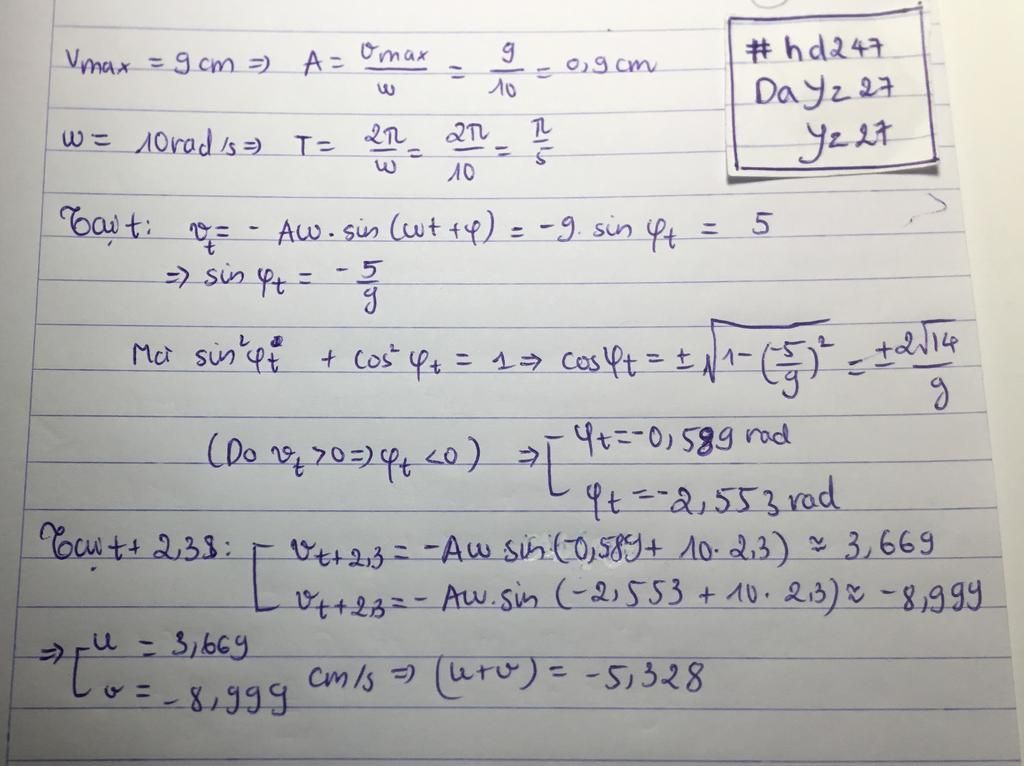 Vmax = 9 cm ⇒ A = vmax/ω = 9/10 = 0,9 cm
#hd247
DaYz27
Yz27
ω = 10 rad/s ⇒ T = 2π/ω = 2π/10 = π/5
Tại t: v_t = - Aω.sin(ωt+φ) = -9. sin φ_t = 5
⇒ sin φ_t = -5/9
Mà sin²φ_t + cos²φ_t = 1 ⇒ cosφ_t = ±√(1-(-5/9)²) = ±2√14/9
(Do v_t >0 ⇒ φ_t <0) ⇒ [ φ_t = -0,589 rad
φ_t = -2,553 rad
Tại t + 2,3s: [ v_t+2,3 = -Aω sin(-0,589 + 10.2,3) ≈ 3,669
v_t+2,3 = - Aω.sin (-2,553 + 10.2,3) ≈ -8,999
⇒ [ u = 3,669
v = -8,999 cm/s ⇒ (u+v) = -5,328